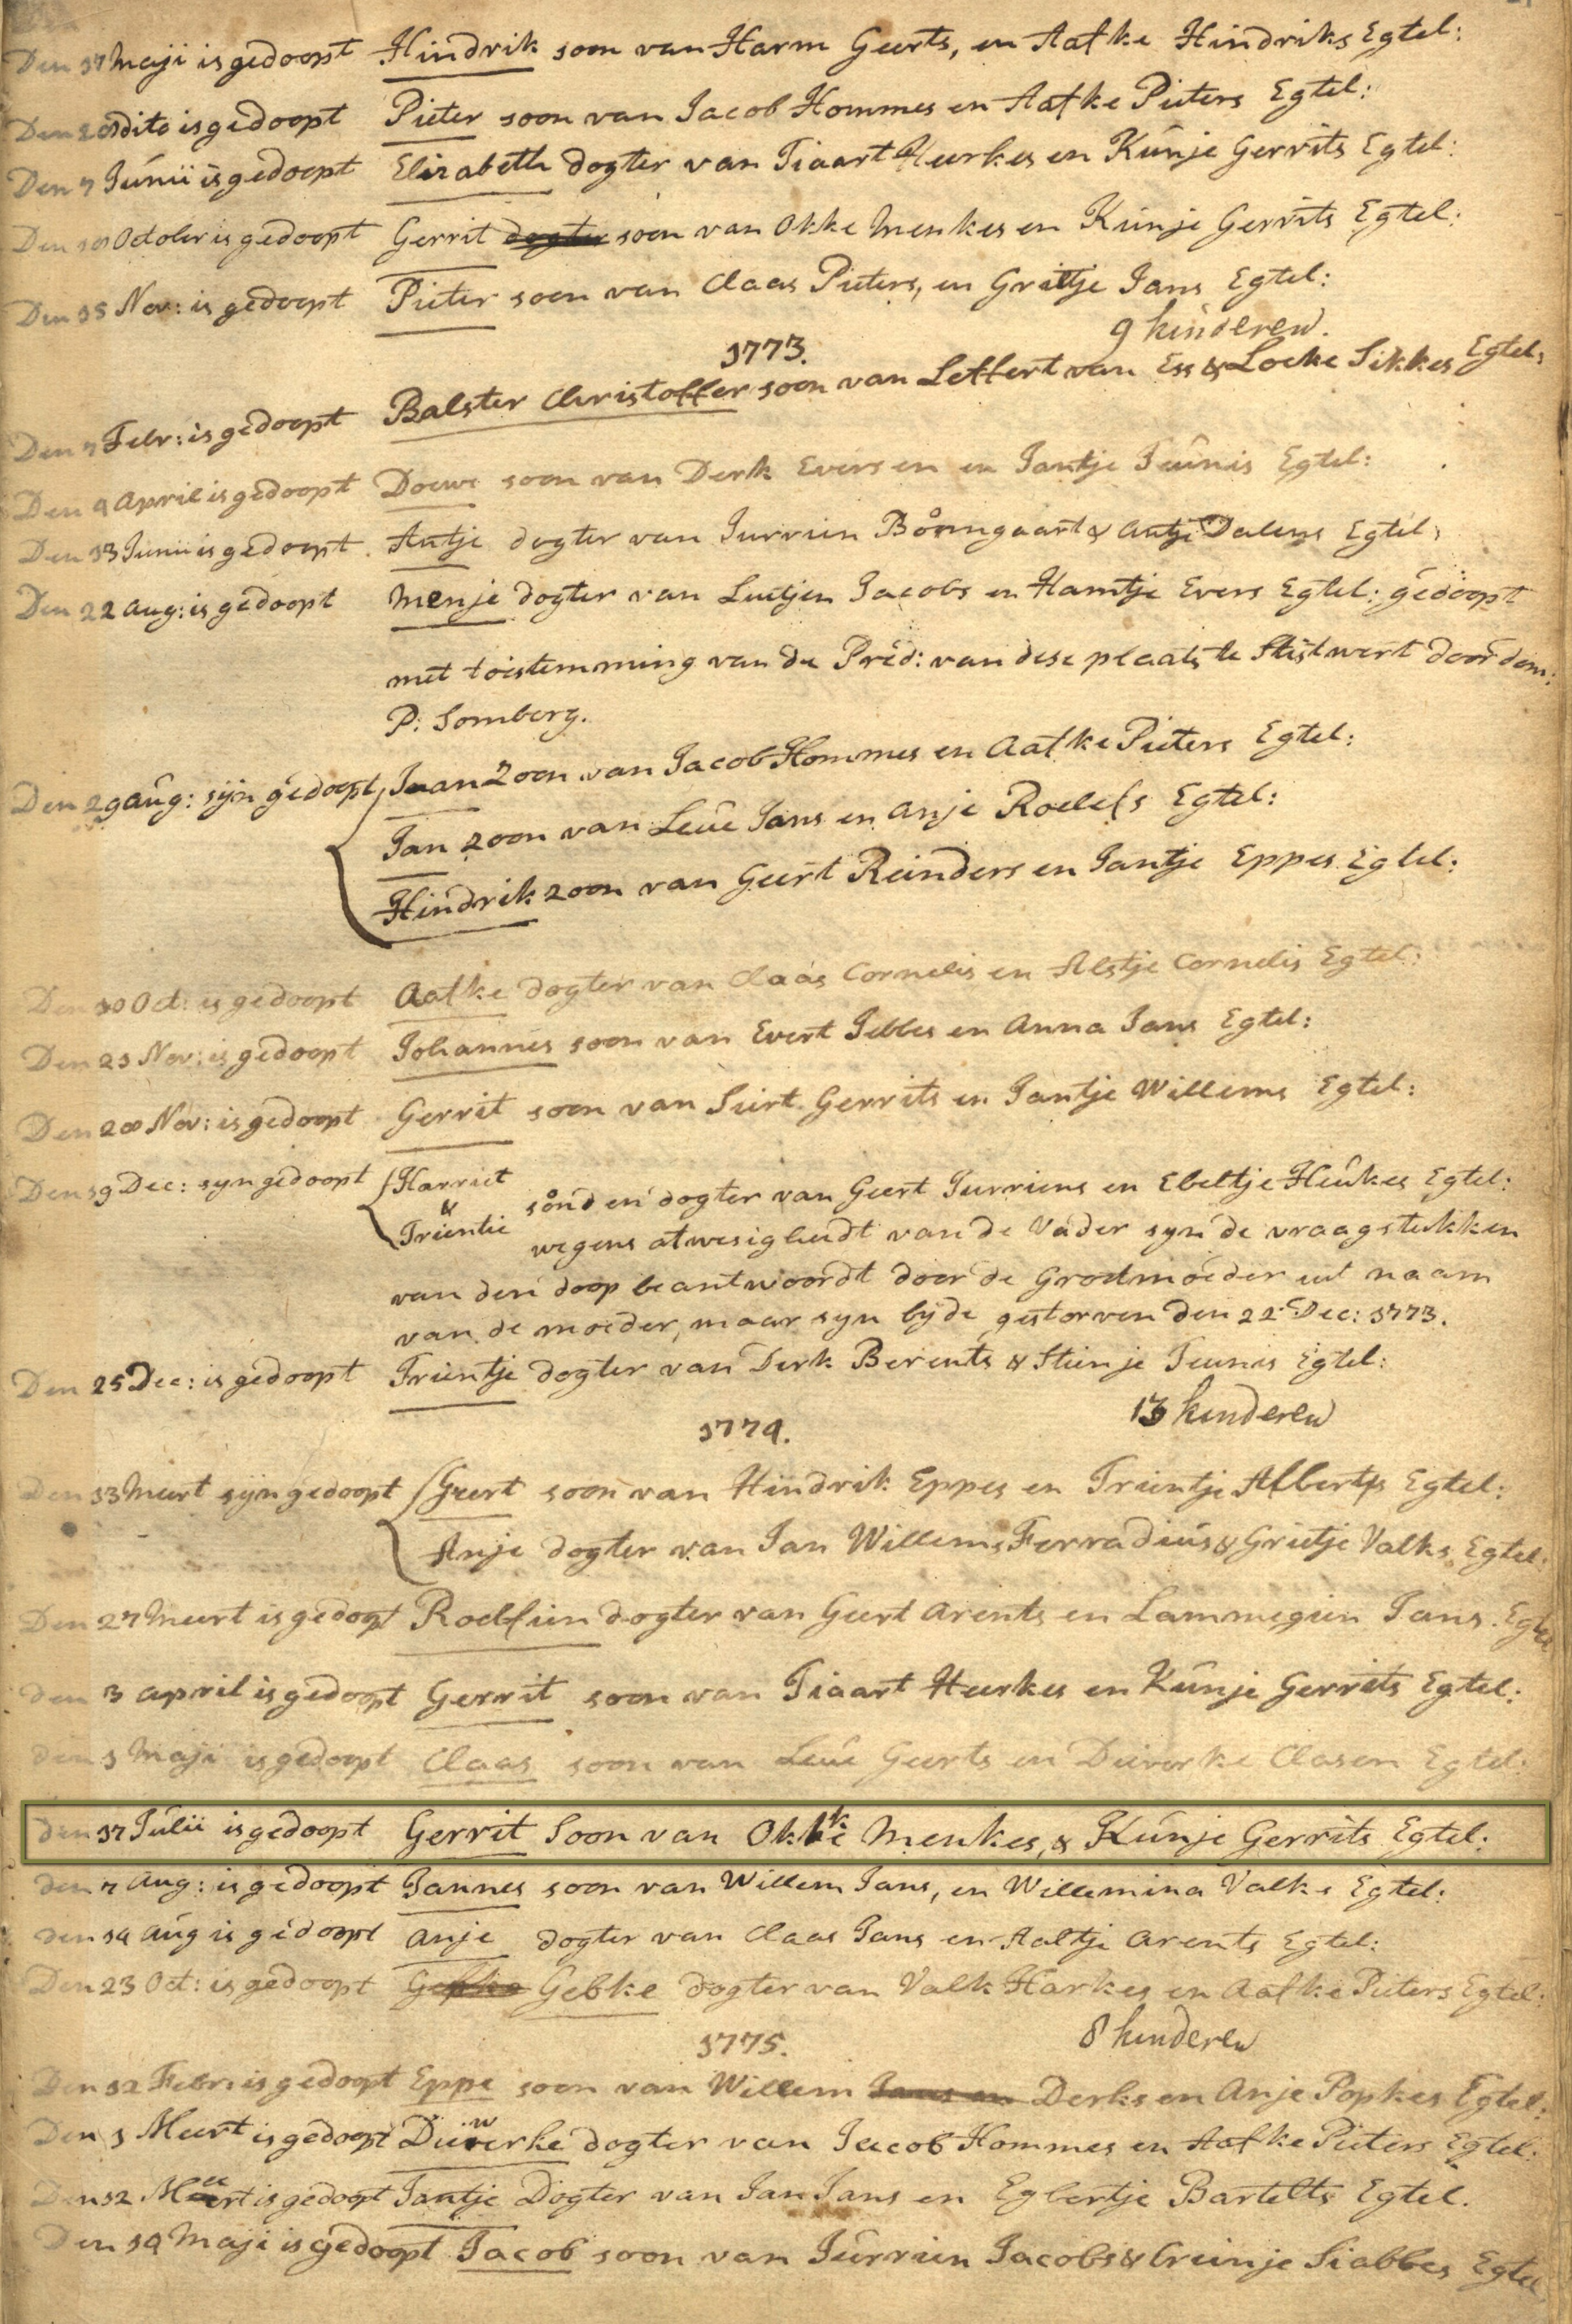 Den 17 Maji is gedoopt Hindrik soon van Harm Geerts, en Aafke Hindriks Egtel:
Den 20 dito is gedoopt Pieter soon van Jacob Hommes en Aafke Pieters Egtel:
Den 7 Junii is gedoopt Elizabeth dogter van Tiaart Heerkes en Kunje Gerrits Egtel:
Den October is gedoopt Gerrit dogter soon van Okke Menkes en Kunje Gerrits Egtel:
Den 15 Nov: is gedoopt Pieter soon van Claas Pieters, en Grietje Jans Egtel:
9 kinderen.
1773.
Den 7 Febr: is gedoopt Balster Christoffer soon van Leffert van Ess & Locke Sikkes Egtel:
Den 4 April is gedoopt Doewe soon van Derk Eversen en Jantje Teunis Egtel:
Den 13 Junii is gedoopt Antje dogter van Jurrien Bomgaart & Antje Dalens Egtel:
Den 22 Aug: is gedoopt Menje dogter van Luitjen Jacobs en Hamtje Evers Egtel: gedoopt
met toestemming van de Pred: van dese plaats te Stitswert door dom:
P: Somberg.
Den 29 Aug: sijn gedoopt Jan Zoon van Jacob Hommes en Aafke Pieters Egtel:
Jan zoon van Leue Jans en Anje Roelefs Egtel:
Hindrik zoon van Geert Reinders en Jantje Eppes Egtel:
Den 10 Oct: is gedoopt Aafke dogter van Claas Cornelis en Alstje Cornelis Egtel:
Den 21 Nov: is gedoopt Johannes soon van Evert Jebbes en Anna Jans Egtel:
Den 28 Nov: is gedoopt Gerrit soon van Siert Gerrits en Jantje Willems Egtel:
Den 19 Dec: syn gedoopt Harriet
& Trientie soon en dogter van Geert Jurriens en Ebeltje Heukes Egtel:
wegens afwesigheidt van de Vader syn de vraagstukken
van den doop beantwoordt door de Grootmoeder uit naam
van de moeder, maar syn byde gestorven den 22 Dec: 1773.
Den 25 Dec: is gedoopt Trientje dogter van Derk Berents & Stienje Teunis Egtel:
13 kinderen
1774.
Den 13 Meert sijn gedoopt Geert soon van Hindrik Eppes en Trientje Alberts Egtel:
Anje dogter van Jan Willems Ferradius & Grietje Valks Egtel:
Den 27 Meert is gedoopt Roelfien dogter van Geert Arents en Lammegien Jans Egtel
den 3 April is gedoopt Gerrit soon van Tiaart Heerkes en Kunje Gerrits Egtel:
den 1 Maji is gedoopt Claas soon van Leue Geerts en Dieuwerke Clasen Egtel:
den 17 Julii is gedoopt Gerrit Soon van Okke Menkes, & Kunje Gerrits Egtel:
den 7 Aug: is gedoopt Jannes soon van Willem Jans, en Willemina Valks Egtel:
den 14 Aug is gedoopt Anje dogter van Claas Jans en Aaltje Arents Egtel:
Den 23 Oct: is gedoopt Gebke dogter van Valk Harkes en Aafke Pieters Egtel:
8 kinderen
1775.
Den 12 Febr: is gedoopt Eppe soon van Willem Jans en Derks en Anje Popkes Egtel:
Den 5 Meert is gedoopt Dieuwerke dogter van Jacob Hommes en Aafke Pieters Egtel:
Den 12 Meert is gedoopt Jantje Dogter van Jan Jans en Egbertje Bartelts Egtel.
Den 14 Maji is gedoopt Jacob soon van Jurrien Jacobs & Trienje Siabbes Egtel